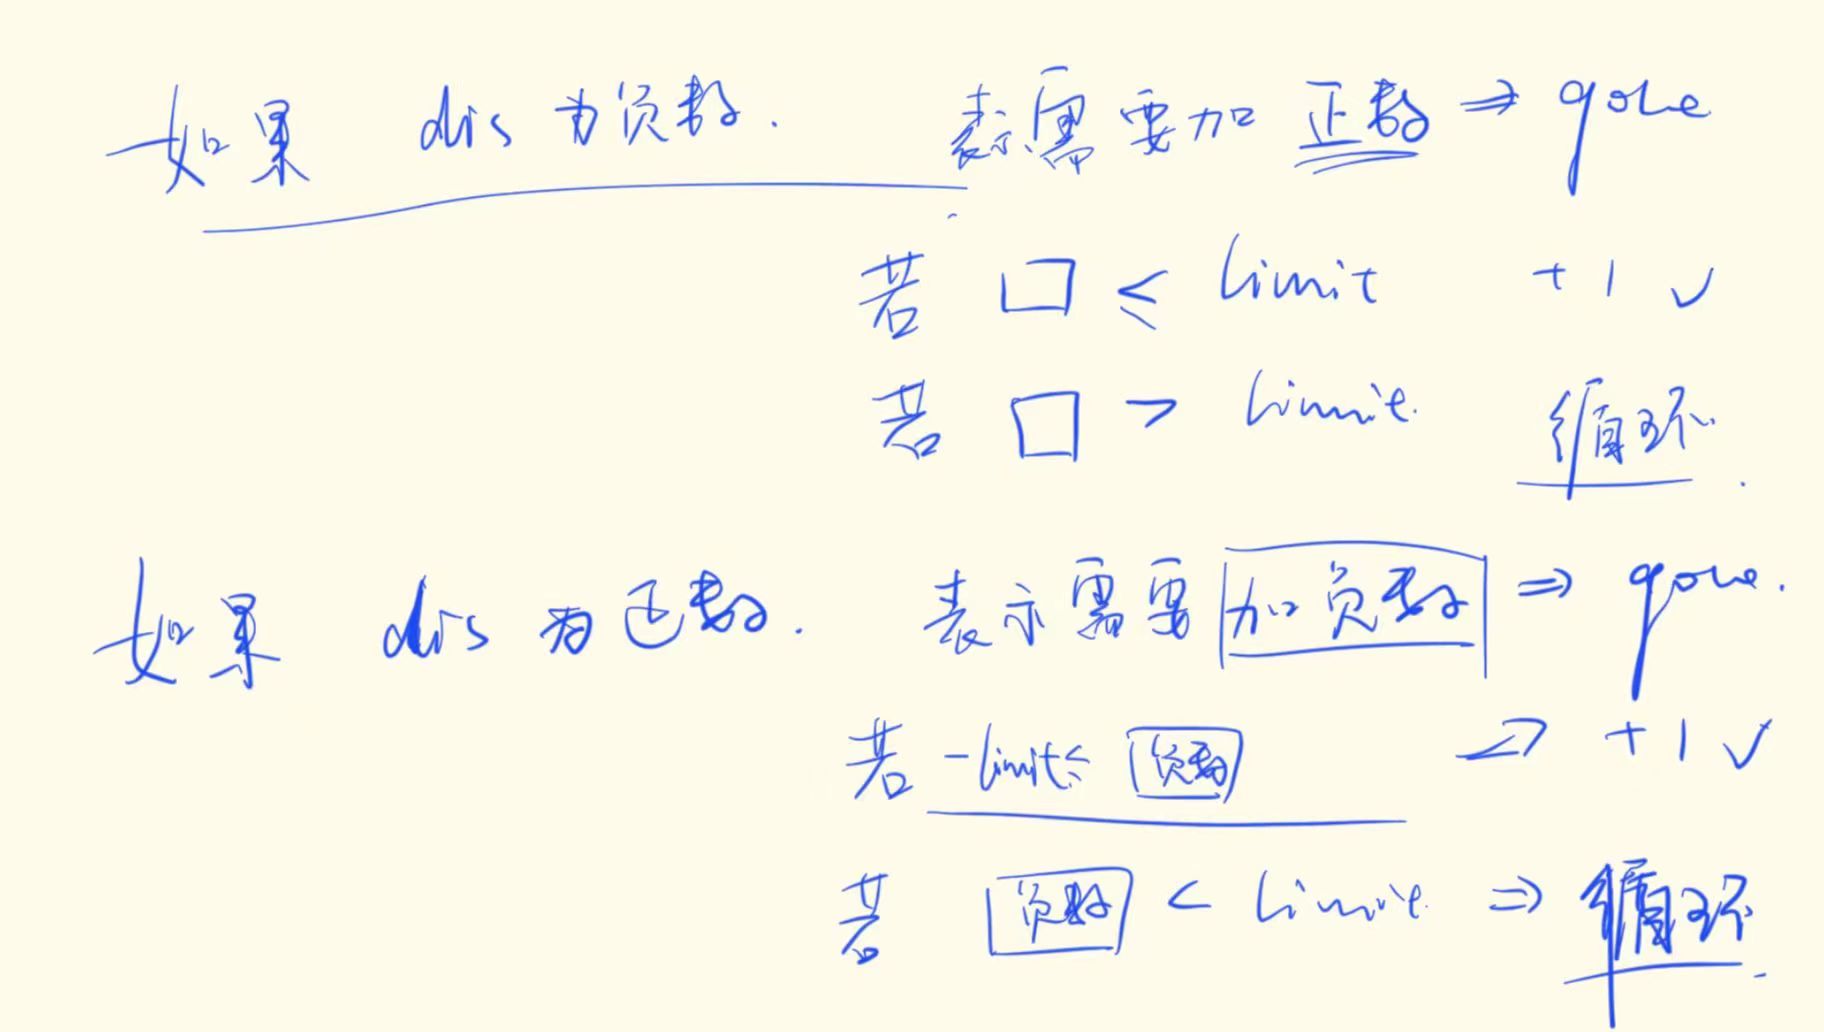 如果 dis 为负数. 表示需要加 正数 ⇒ gone
若 □ ≤ limit +1 ✓
若 □ > limit. 循环.
如果 dis 为正数. 表示需要 加负数 ⇒ gone.
若 -limit ≤ 负数 ⇒ +1 ✓
若 负数 < limit ⇒ 循环.